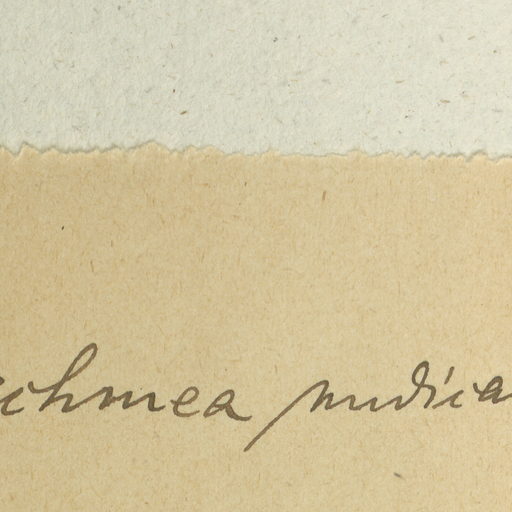 echmea nudica